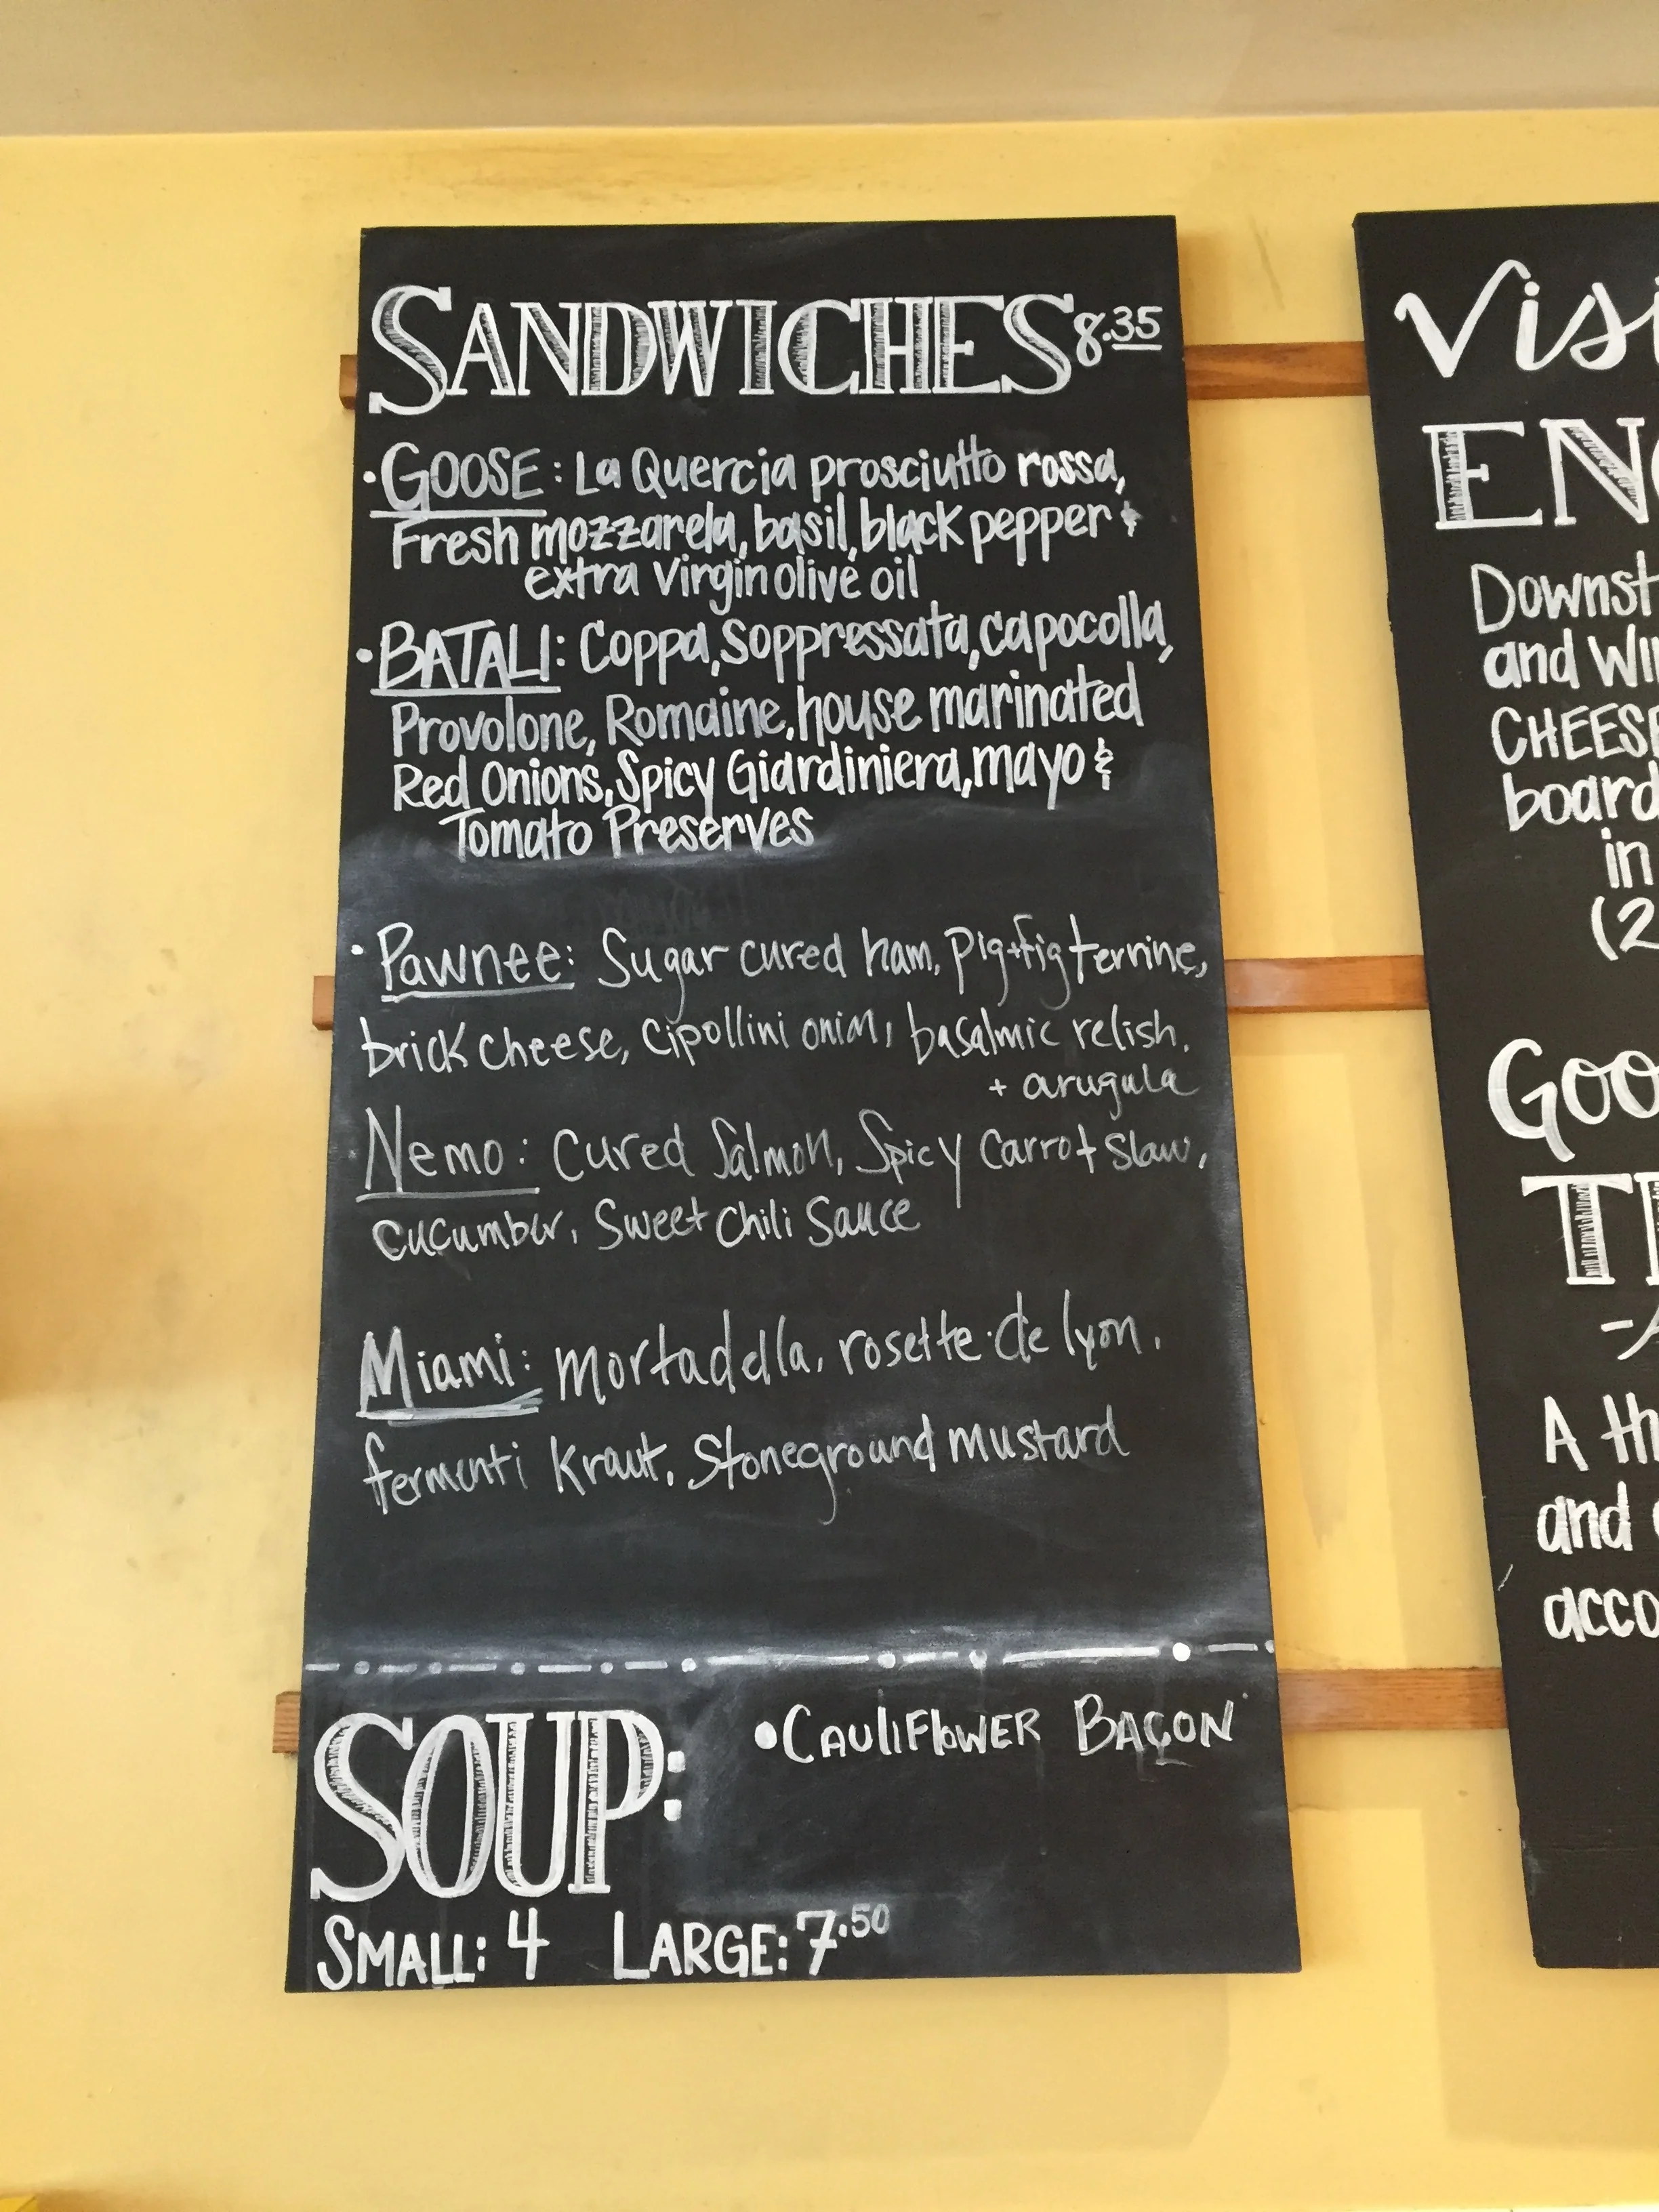 SANDWICHES 8.35
• GOOSE: La Quercia prosciutto rossa,
Fresh mozzarela, basil, black pepper &
extra Virgin olive oil
• BATALI: Coppa, Soppressata, capocolla,
Provolone, Romaine, house marinated
Red Onions, Spicy Giardiniera, mayo &
Tomato Preserves
• Pawnee: Sugar cured ham, pig+fig terrine,
brick cheese, cipollini onion, basalmic relish.
+ arugula
• Nemo: Cured Salmon, Spicy Carrot Slaw,
cucumber, Sweet Chili Sauce
Miami: mortadella, rosette de lyon,
fermenti Kraut, Stoneground mustard
SOUP:
• CAULIFLOWER BACON
SMALL: 4 LARGE: 7.50
Visi
EN
Downst
and WI
CHEESE
board
in
(2
Goo
T
A th
and
acco